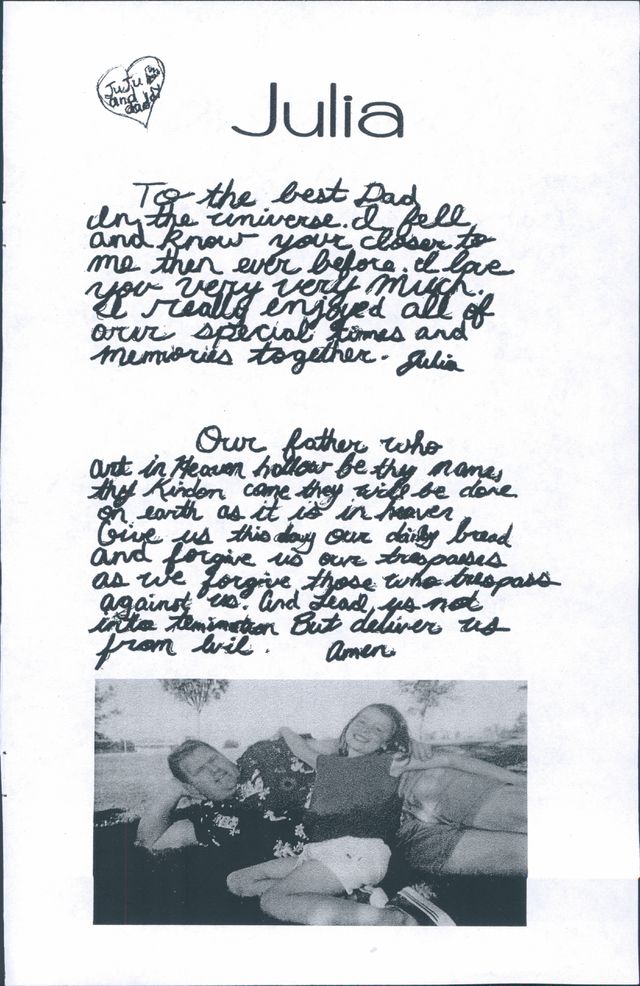 JuJu
and
daddy
Julia
To the best Dad
In the universe. I fell
and know your closer to
me then ever before. I love
you very very much.
I really enjoyed all of
our special times and
memories together. Julia
Our father who
art in Heaven hallow be thy name,
thy Kindon come they will be done
on earth as it is in heaven
Give us this day our daily bread
and forgive us our trespasses
as we forgive those who trespass
against us. And Lead us not
into But deliver us
from evil. Amen